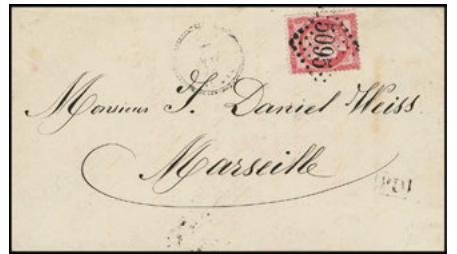 5095
Monsieur J. Daniel Weiss
Marseille